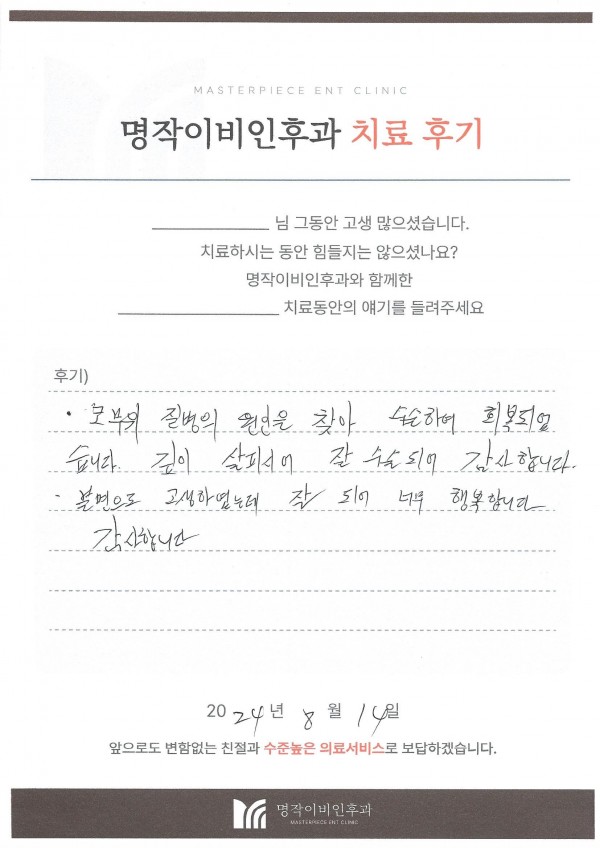 MASTERPIECE ENT CLINIC
명작이비인후과 치료 후기
님 그동안 고생 많으셨습니다.
치료하시는 동안 힘들지는 않으셨나요?
명작이비인후과와 함께한
치료동안의 얘기를 들려주세요
후기)
· 질병의 원인을 찾아 수술하여 회복되었
습니다. 깊이 살피시어 잘 수술되어 감사합니다.
· 불면으로 고생하였는데 잘 되어 너무 행복합니다
감사합니다
2024년 8월 14일
앞으로도 변함없는 친절과 수준높은 의료서비스로 보답하겠습니다.
명작이비인후과
MASTERPIECE ENT CLINIC